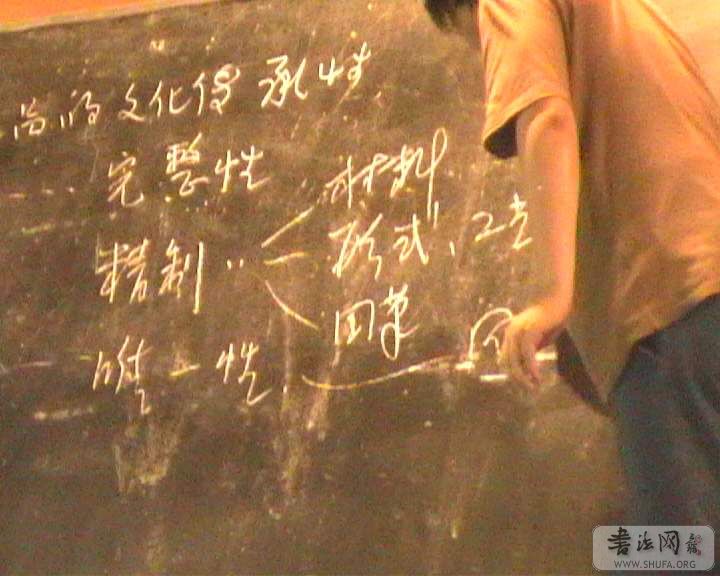 尚的文化传承性
完整性
精制
材料
形式、工艺
用笔
唯一性
書法网
WWW.SHUFA.ORG